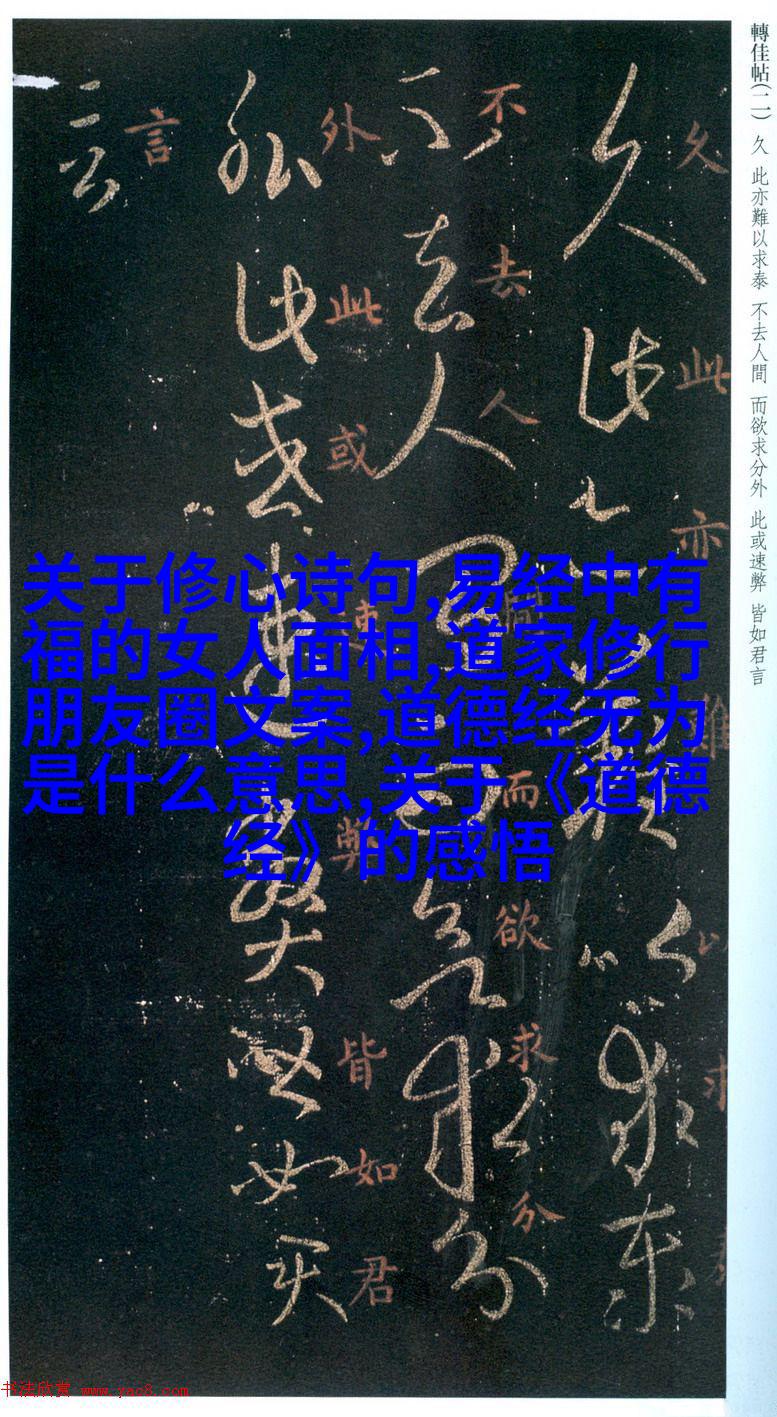 轉佳帖(二) 久 此亦難以求泰 不去人間 而欲求分外 此或速弊 皆如君言
久此亦難以求泰
不去人間而欲求分
外此或速弊皆如君
言
关于修心诗句,易经中有
福的女人面相,道家修行
朋友圈文案,道德经无为
是什么意思,关于《道德
经》的感悟
书法欣赏 www.yac8.com